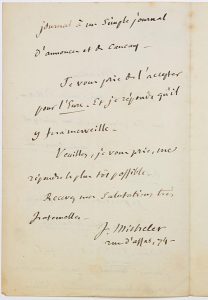 journal à un simple journal
d'annonces et de
Je vous prie de l'accepter
pour l'Eure. Et je réponds qu'il
y fera merveille.
Veuillez, je vous prie, me
répondre le plus tôt possible.
Recevez mes salutations très
fraternelles.
J. Michelet
rue d'assas, 74 -